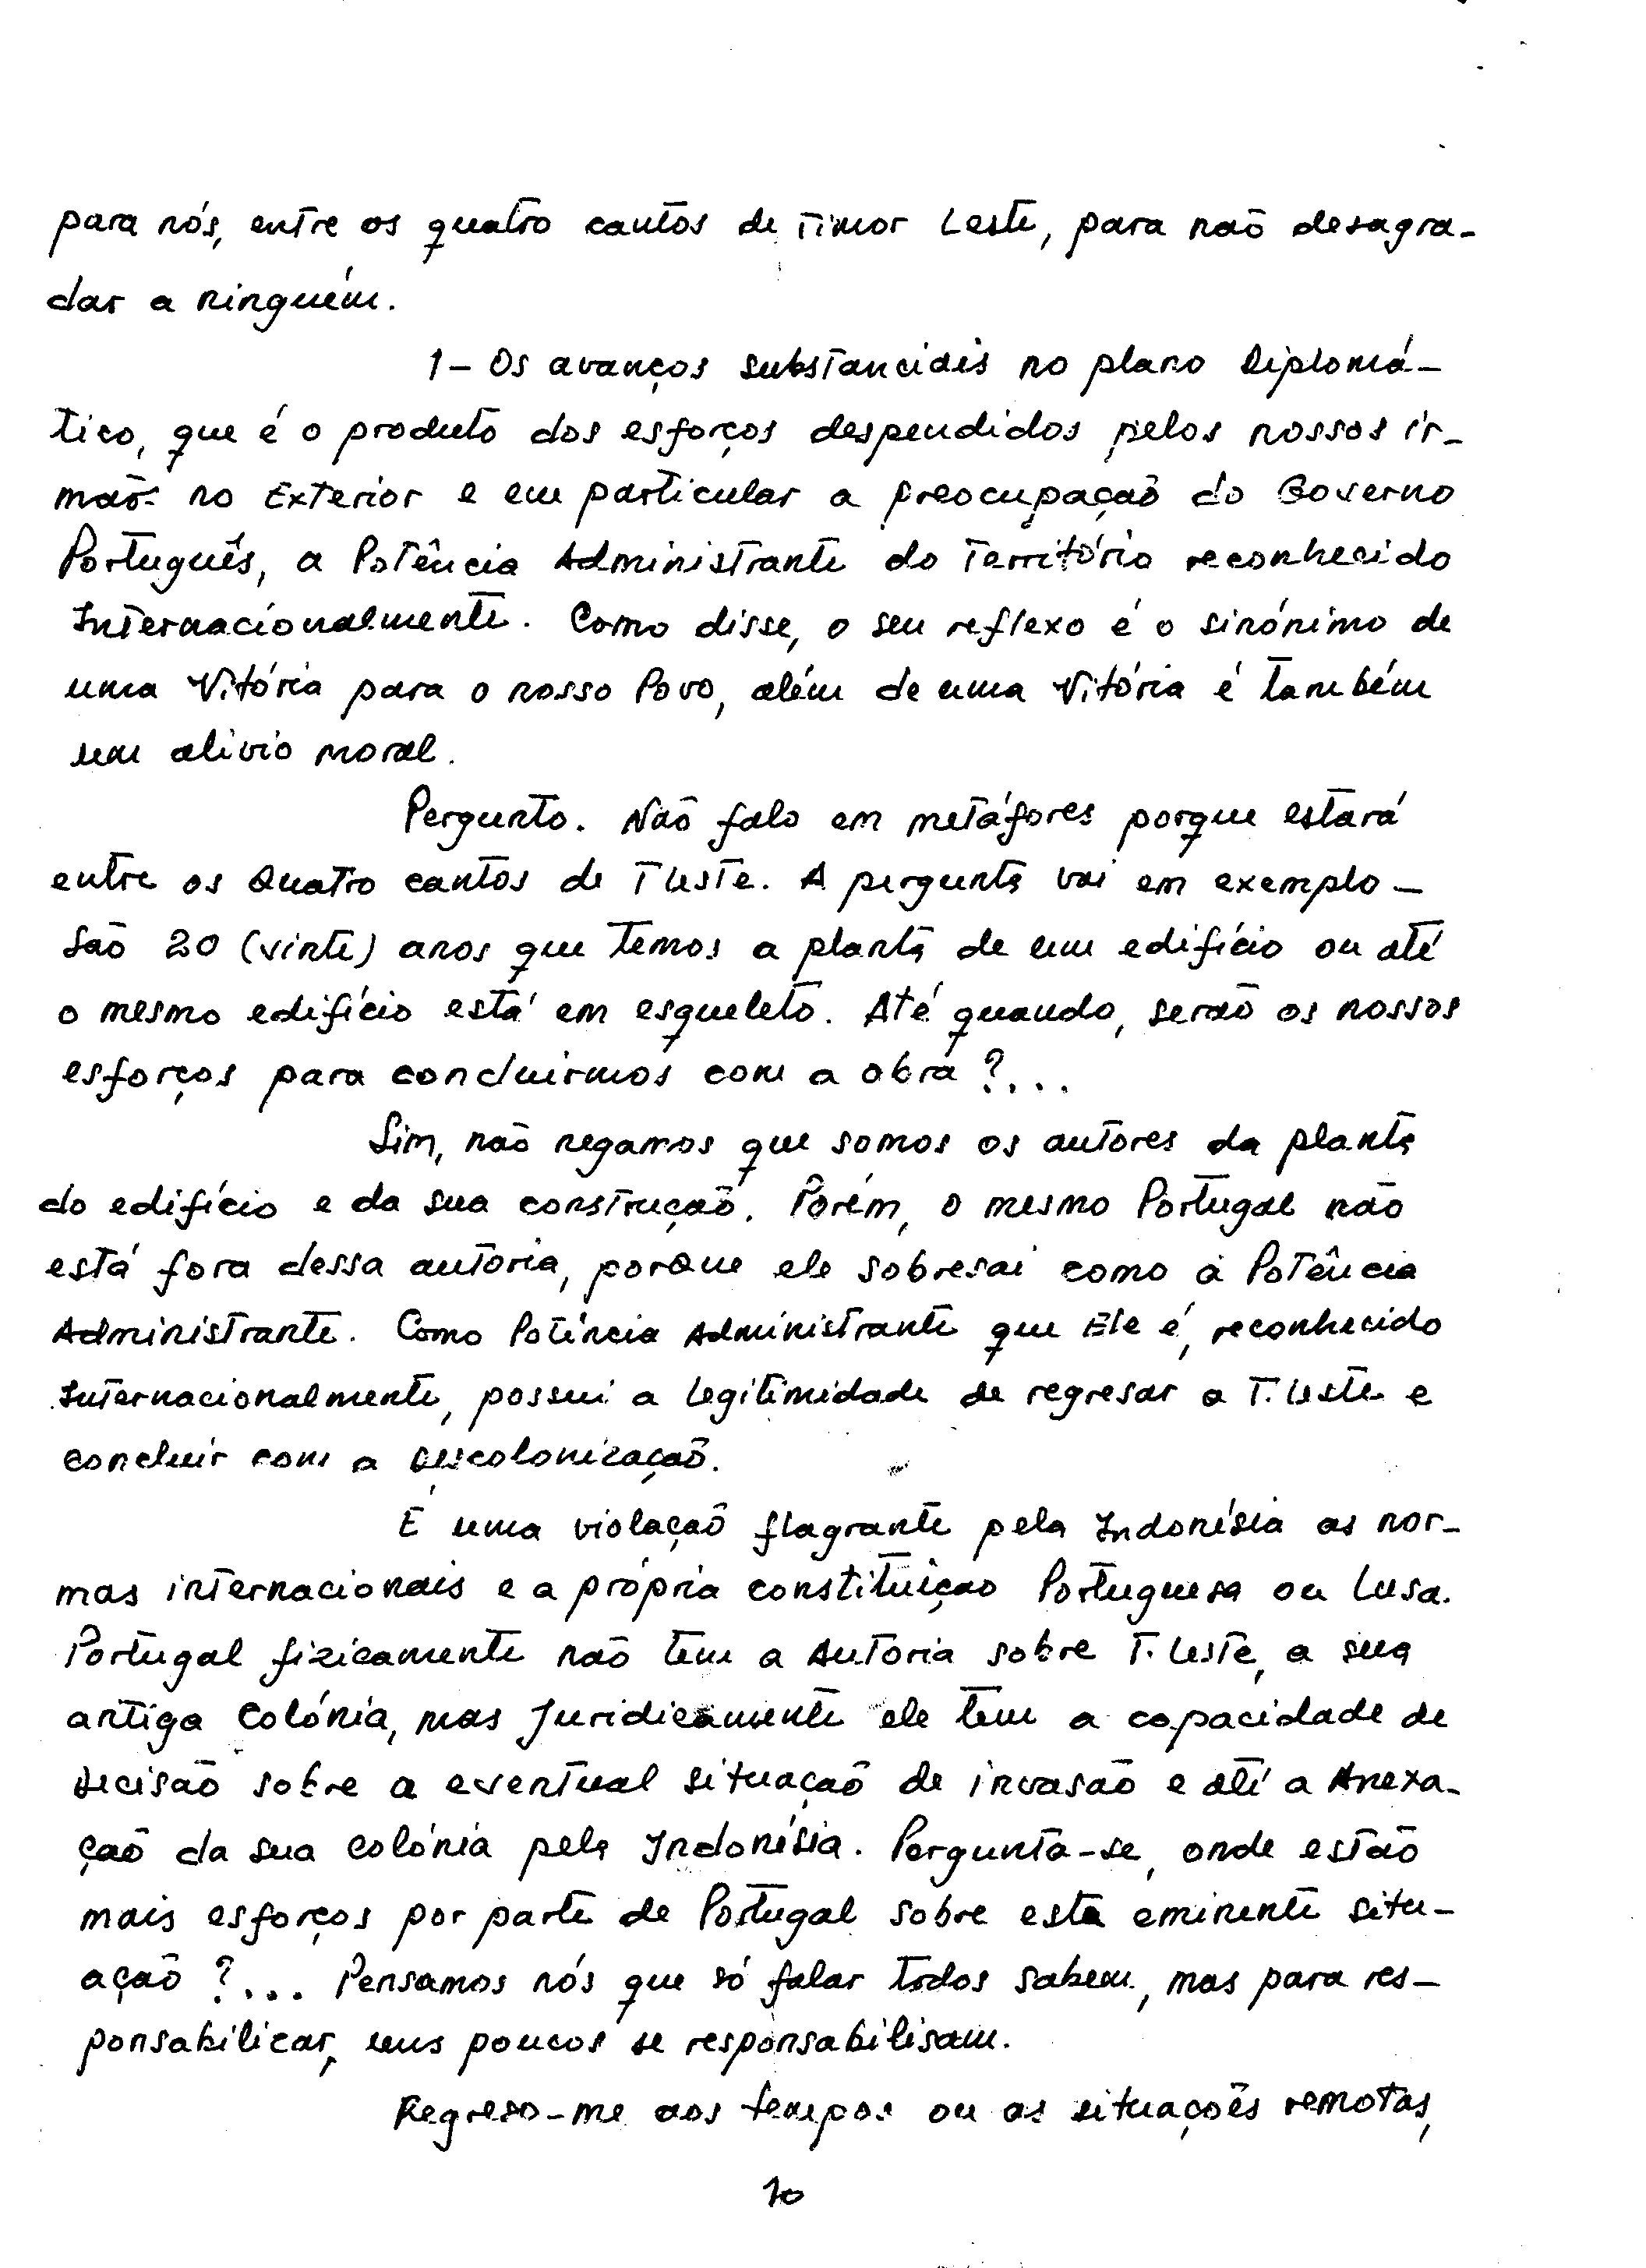 para nós, entre os quatro cantos de Timor Leste, para não desagra-
dar a ninguém.
1- Os avanços substanciais no plano Diplomá-
tico, que é o produto dos esforços despendidos pelos nossos ir-
mãos no Exterior e em particular a preocupação do Governo
Português, a Potência Administrante do Território reconhecido
Internacionalmente. Como disse, o seu reflexo é o sinónimo de
uma Vitória para o nosso Povo, além de uma Vitória é também
um alivio moral.
Pergunto. Não falo em metáfores porque estará
entre os Quatro cantos de T Leste. A pergunta vai em exemplo -
São 20 (vinte) anos que temos a planta de um edifício ou até
o mesmo edifício está em esqueleto. Até quando, serão os nossos
esforços para concluirmos com a obra ?...
Sim, não negamos que somos os autores da planta
do edifício e da sua construção. Porém, o mesmo Portugal não
está fora dessa autoria, porque ele sobresai como a Potência
Administrante. Como Potência Administrante que Ele é, reconhecido
Internacionalmente, possui a legitimidade de regresar a T. Leste e
concluir com a Descolonização.
É uma violação flagrante pela Indonésia as nor-
mas internacionais e a própria constituiçao Portuguesa ou Lusa.
Portugal fizicamente não tem a Autoria sobre T. Leste, a sua
antiga Colónia, mas Juridicamente ele tem a capacidade de
decisão sobre a eventual situação de invasão e até a Anexa-
ção da sua colónia pela Indonésia. Pergunta-se, onde estão
mais esforços por parte de Portugal sobre esta eminente situ-
ação ?... Pensamos nós que só falar todos sabem, mas para res-
ponsabilizar, uns poucos se responsabilisam.
Regreso-me aos tempos ou as situações remotas,
10